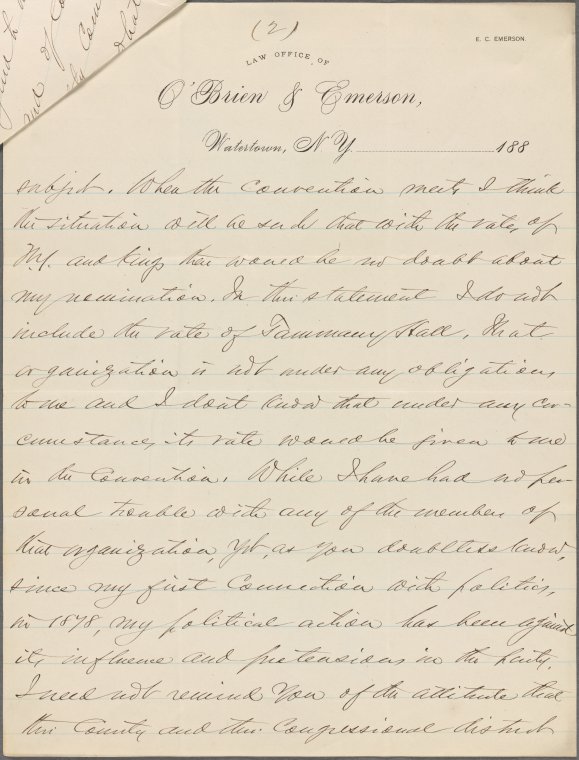 (2)
E. C. EMERSON.
LAW OFFICE OF
O'Brien & Emerson,
Watertown, N.Y. 188
subject. When the convention meets I think
the situation will be such that with the votes of
N.Y. and Kings there would be no doubt about
my nomination. In this statement I do not
include the vote of Tammany Hall. That
organization is not under any obligations
to me and I dont know that under any cir-
cumstances its vote would be given to me
in the Convention. While I have had no per-
sonal trouble with any of the members of
that organization, yet, as you doubtless know,
since my first connection with politics,
in 1878, my political action has been against
its influence and pretensions in the party.
I need not remind you of the attitude that
this County and this Congressional district